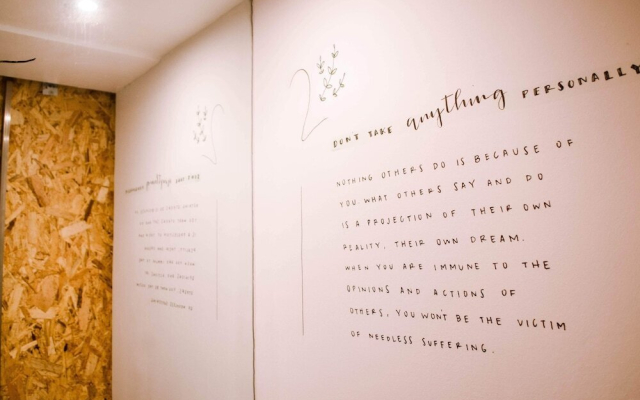 2
DON'T TAKE anything PERSONALLY
NOTHING OTHERS DO IS BECAUSE OF
YOU WHAT OTHERS SAY AND DO
IS A PROJECTION OF THEIR OWN
REALITY, THEIR OWN DREAM.
WHEN YOU ARE IMMUNE TO THE
OPINIONS AND ACTIONS OF
OTHERS, YOU WON'T BE THE VICTIM
OF NEEDLESS SUFFERING.